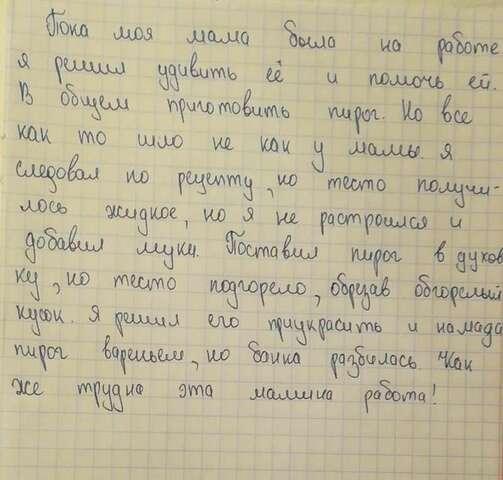 Пока моя мама была на работе
я решил удивить её и помочь ей.
В общем приготовить пирог. Но все
как то шло не как у мамы. Я
следовал по рецепту, но тесто получи-
лось жидкое, но я не растроился и
добавил муки. Поставил пирог в духов
ку, но тесто подгорело, обрезав обгорелый
кусок. Я решил его приукрасить и намаза
пирог вареньем, но банка разбилась. Как
же трудна эта мамина работа!